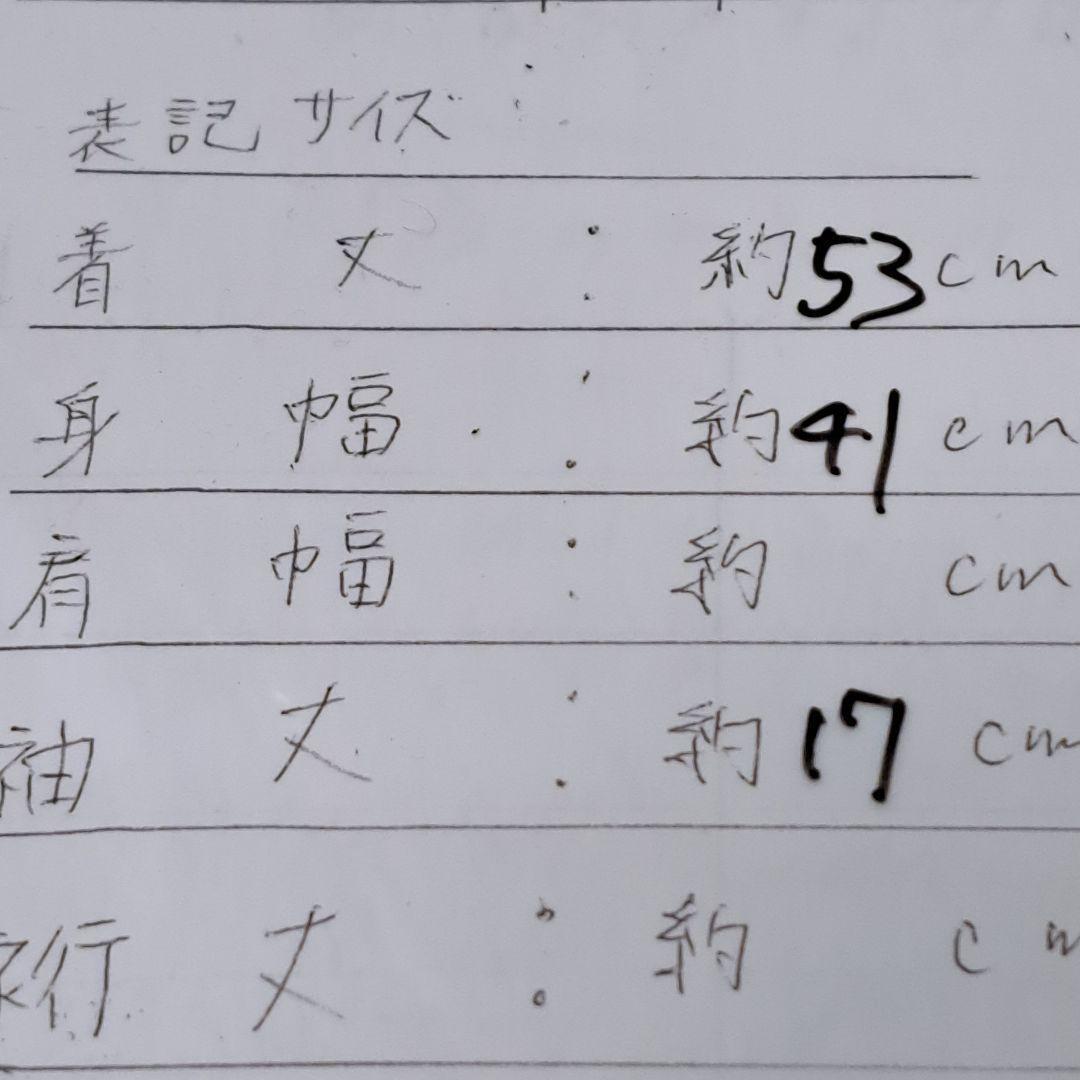 表記サイズ :
着丈 : 約53cm
身幅 : 約41cm
肩幅 : 約 cm
袖丈 : 約17cm
裄丈 : 約 cm